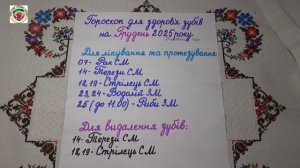 Гороскоп для здоров'я зубів
на Грудень 2025 року
Для лікування та протезування:
07- Рак СМ
14- Терези СМ
18,19- Стрілець СМ
23,24- Водолій ЗМ
25 (до 11.00) - Риби ЗМ
Для видалення зубів:
14- Терези СМ
18,19- Стрілець СМ